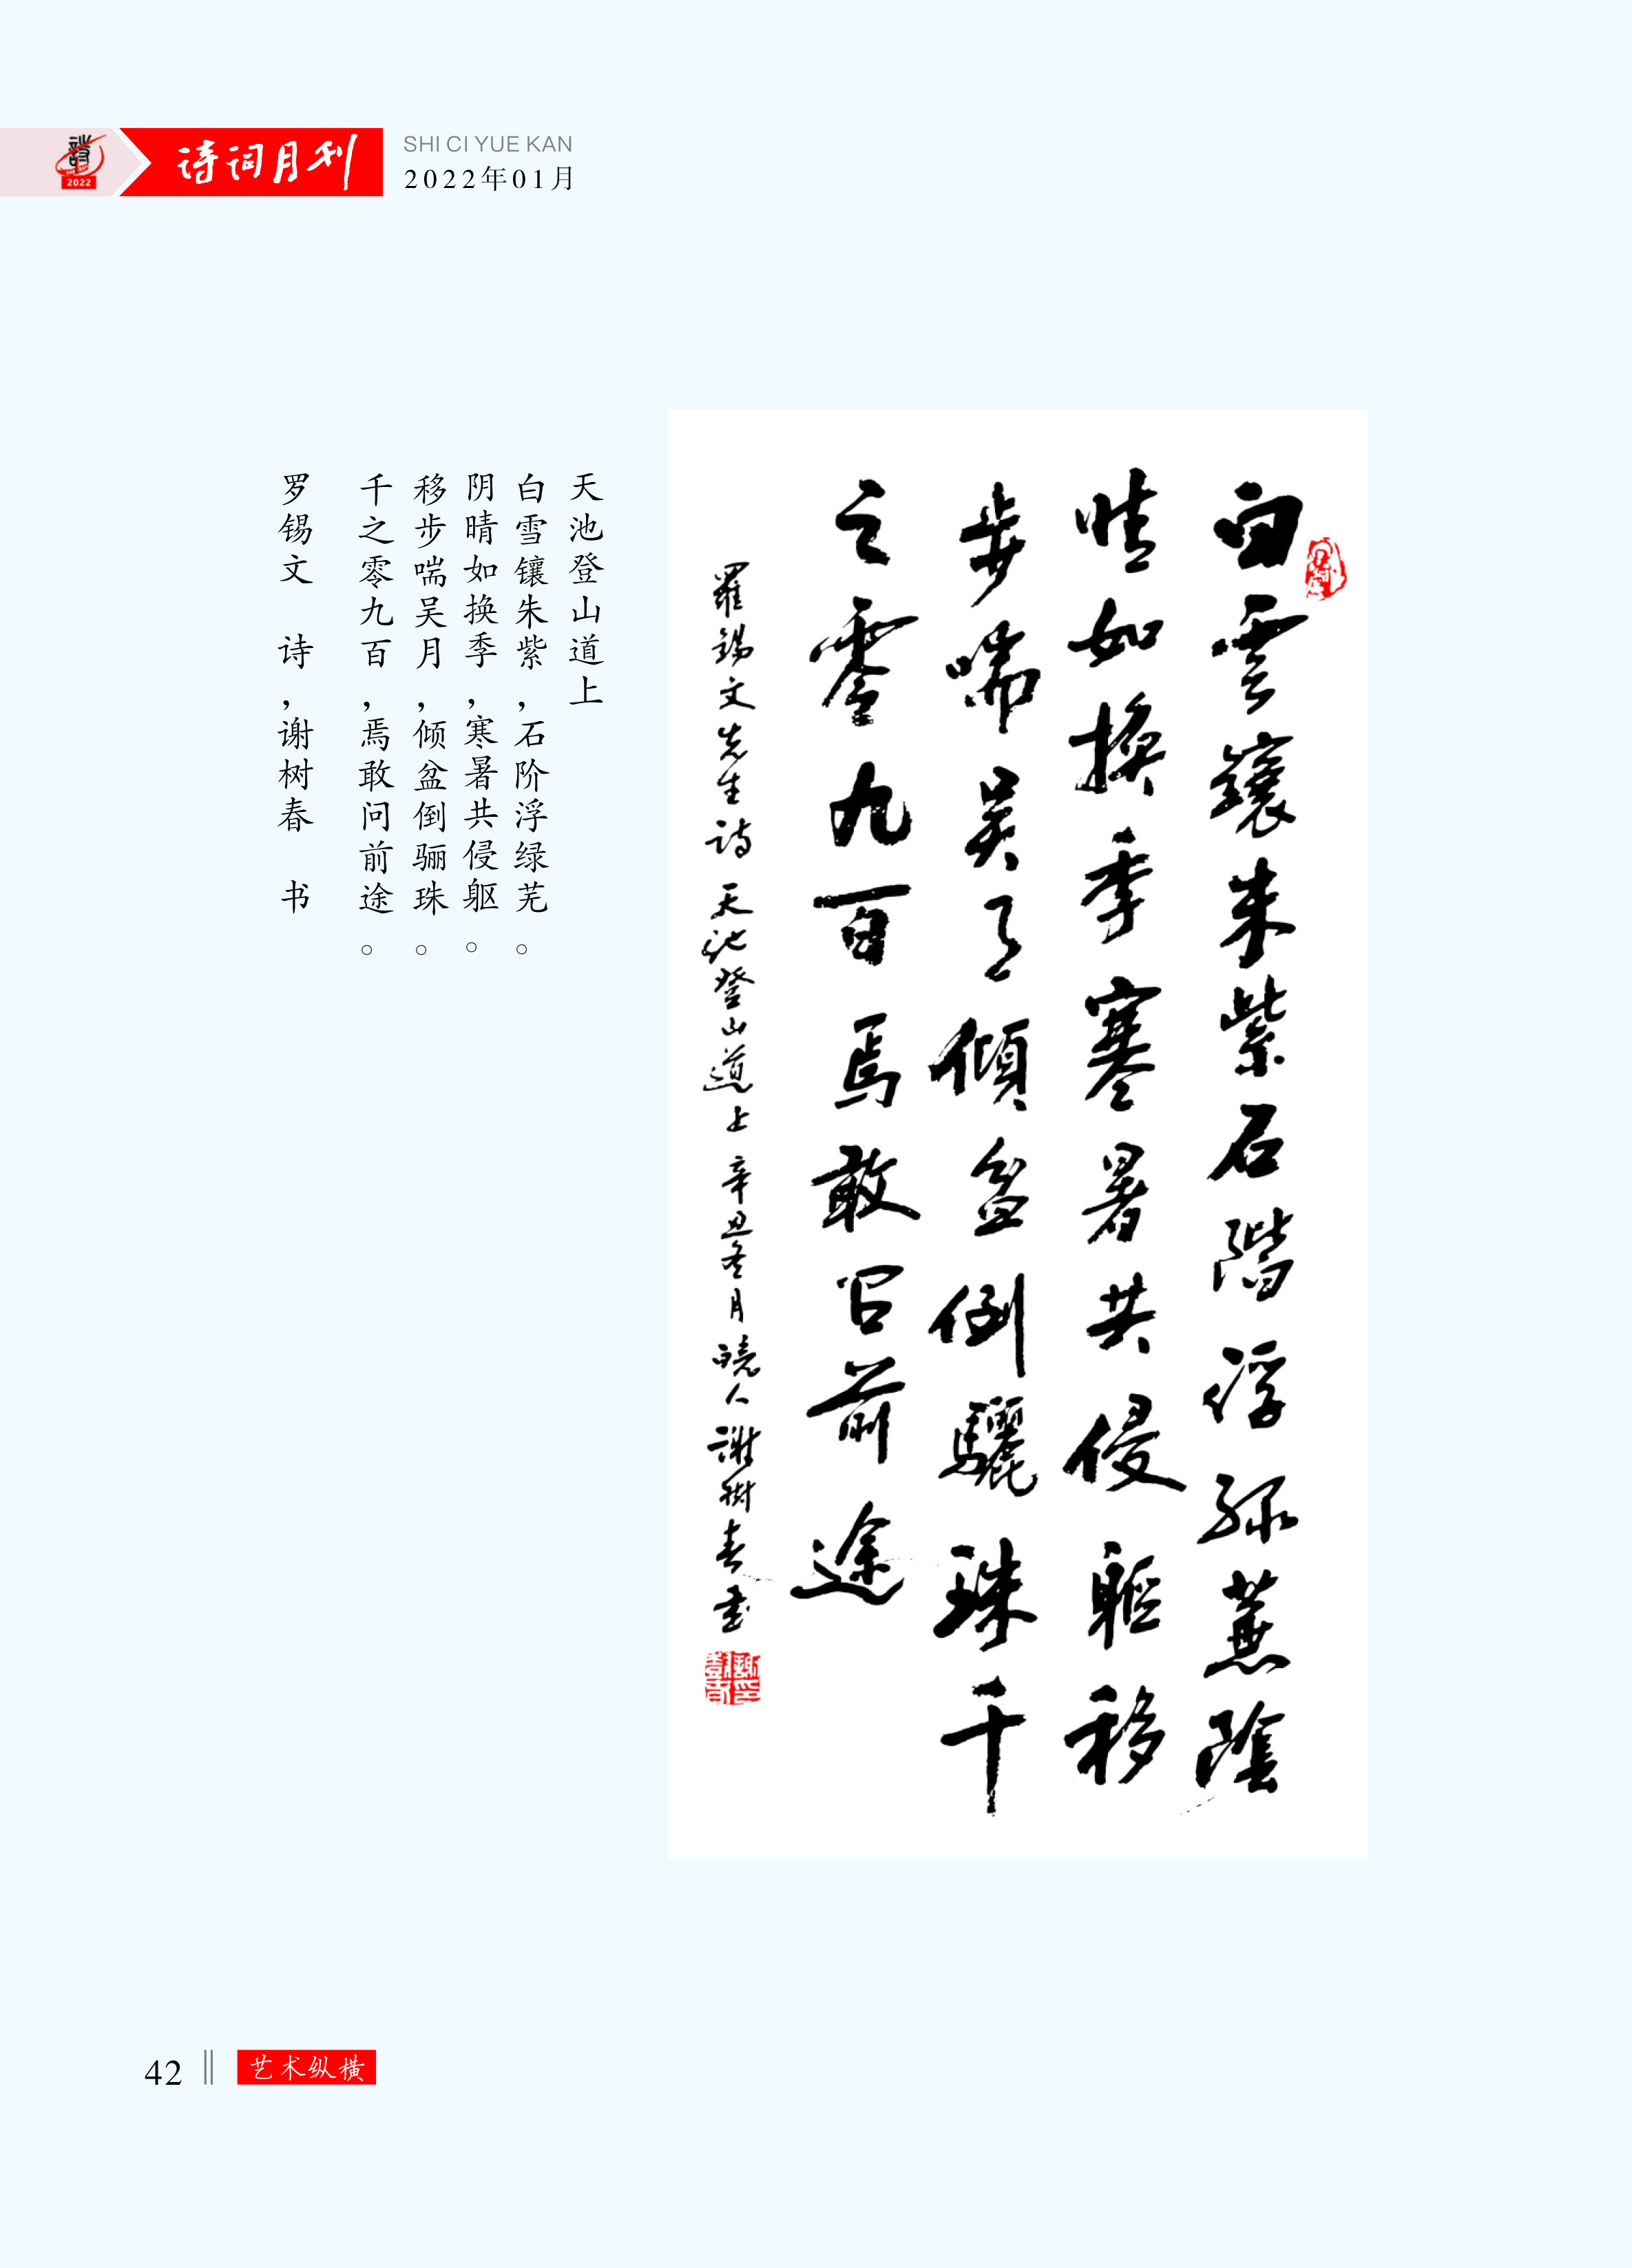 詩
2022
诗词月刊
SHI CI YUE KAN
2022年01月
白雲鑲朱紫石階浮綠蕪陰
晴如換季寒暑共侵軀移
步喘吳月傾盆倒驪珠千
之零九百焉敢問前途
羅錫文先生詩 天池登山道上 辛丑冬月 曉人謝樹春書
天池登山道上
白雪镶朱紫，石阶浮绿芜。
阴晴如换季，寒暑共侵躯。
移步喘吴月，倾盆倒骊珠。
千之零九百，焉敢问前途。
罗锡文 诗，谢树春 书
42
艺术纵横